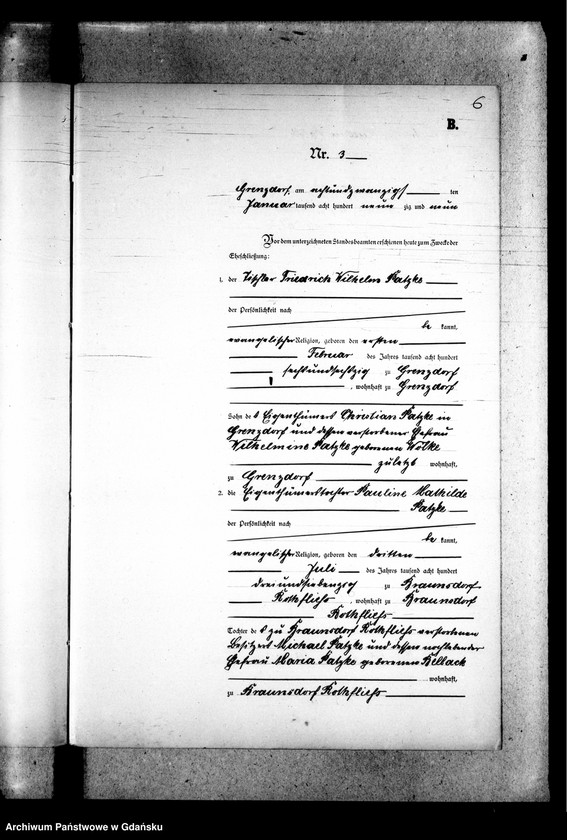 6
B.
Nr. 3
Grenzdorf, am achtundzwanzigsten
Januar tausend acht hundert neun zig und neun
Vor dem unterzeichneten Standesbeamten erschienen heute zum Zwecke der
Eheschließung:
1. der Tischler Friedrich Wilhelm Patzke
der Persönlichkeit nach
be kannt,
evangelischer Religion, geboren den ersten
Februar des Jahres tausend acht hundert
sechsundsechzig zu Grenzdorf
, wohnhaft zu Grenzdorf
Sohn des Eigenthümers Christian Patzke in
Grenzdorf und dessen verstorbener Ehefrau
Wilhelmine Patzke geborenen Wölke
zuletzt wohnhaft,
zu Grenzdorf
2. die Eigenthümerstochter Pauline Mathilde
Patzke
der Persönlichkeit nach
be kannt,
evangelischer Religion, geboren den dritten
Juli des Jahres tausend acht hundert
dreiundsiebenzig zu Braunsdorf
Rothfliess, wohnhaft zu Braunsdorf
Rothfliess
Tochter des zu Braunsdorf Rothfliess verstorbenen
Besitzers Michael Patzke und dessen nachlebender
Ehefrau Maria Patzke geborenen
wohnhaft,
zu Braunsdorf Rothfliess
Archiwum Państwowe w Gdańsku